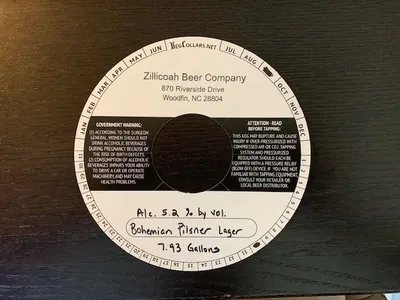 JAN FEB MAR APR MAY JUN KEGCOLLARS.NET JUL AUG OCT NOV DEC
Zillicoah Beer Company
870 Riverside Drive
Woodfin, NC 28804
GOVERNMENT WARNING:
(1) ACCORDING TO THE SURGEON
GENERAL, WOMEN SHOULD NOT
DRINK ALCOHOLIC BEVERAGES
DURING PREGNANCY BECAUSE OF
THE RISK OF BIRTH DEFECTS.
(2) CONSUMPTION OF ALCOHOLIC
BEVERAGES IMPAIRS YOUR ABILITY
TO DRIVE A CAR OR OPERATE
MACHINERY, AND MAY CAUSE
HEALTH PROBLEMS.
ATTENTION - READ
BEFORE TAPPING:
THIS KEG MAY RUPTURE AND CAUSE
INJURY IF OVER-PRESSURIZED WITH
COMPRESSED AIR OR CO2. TAPPING
SYSTEM AND PRESSURIZED
REGULATOR SHOULD EACH BE
EQUIPPED WITH A PRESSURE RELIEF
(BLOW OFF) DEVICE. IF YOU ARE NOT
FAMILIAR WITH TAPPING EQUIPMENT,
CONSULT YOUR RETAILER OR
LOCAL BEER DISTRIBUTOR.
Alc. 5.2 % by vol.
Bohemian Pilsner Lager
7.93 Gallons